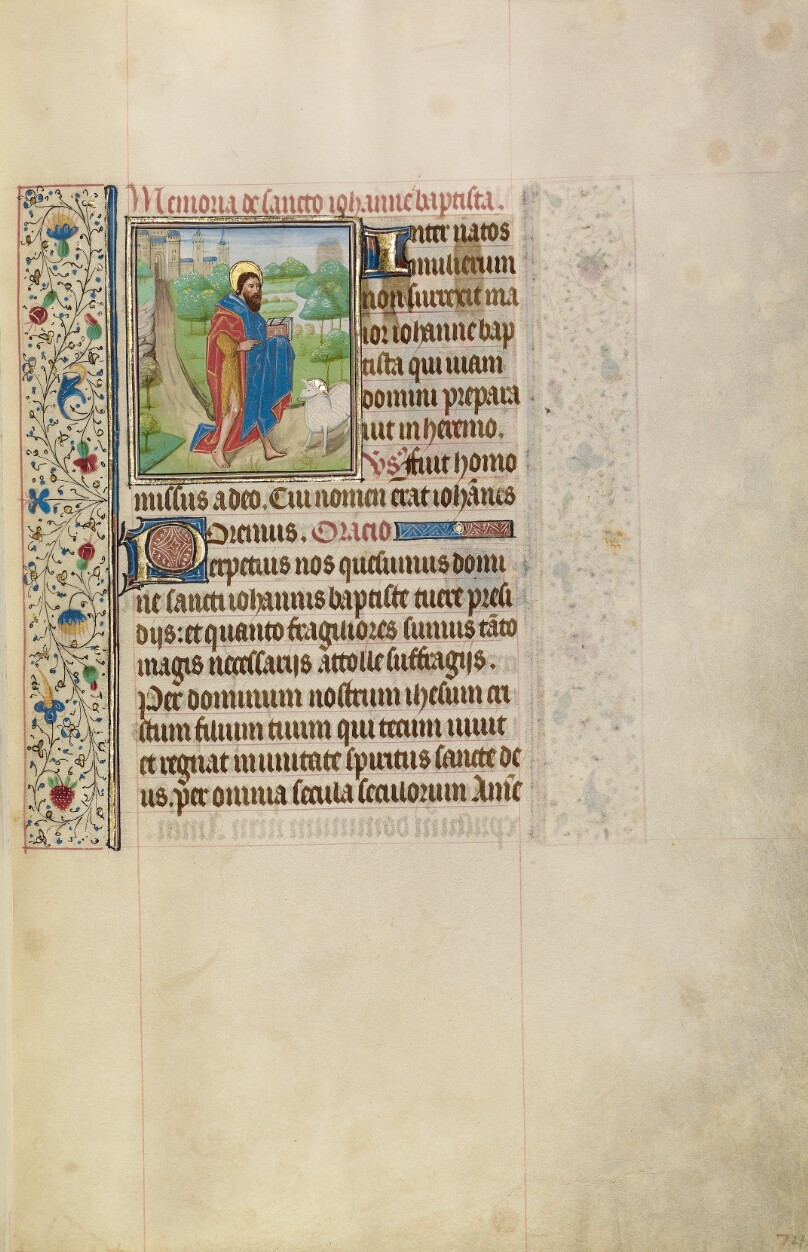 Memoria de sancto iohanne baptista.
Inter natos
mulierum
non surrexit ma
ior iohanne bap
tista qui uiam
domini prepara
uit in heremo.
Vs Fuit homo
missus a deo. Cui nomen erat iohānes
Oremus. Oracio
Perpetuis nos quesumus domi
ne sancti iohannis baptiste tuere presi
dijs: et quanto fragiliores sumus tāto
magis necessarijs attolle suffragijs.
Per dominum nostrum ihesum cri
stum filium tuum qui tecum uiuit
et regnat in unitate spiritus sancte de
us. per omnia secula seculorum Amē
74